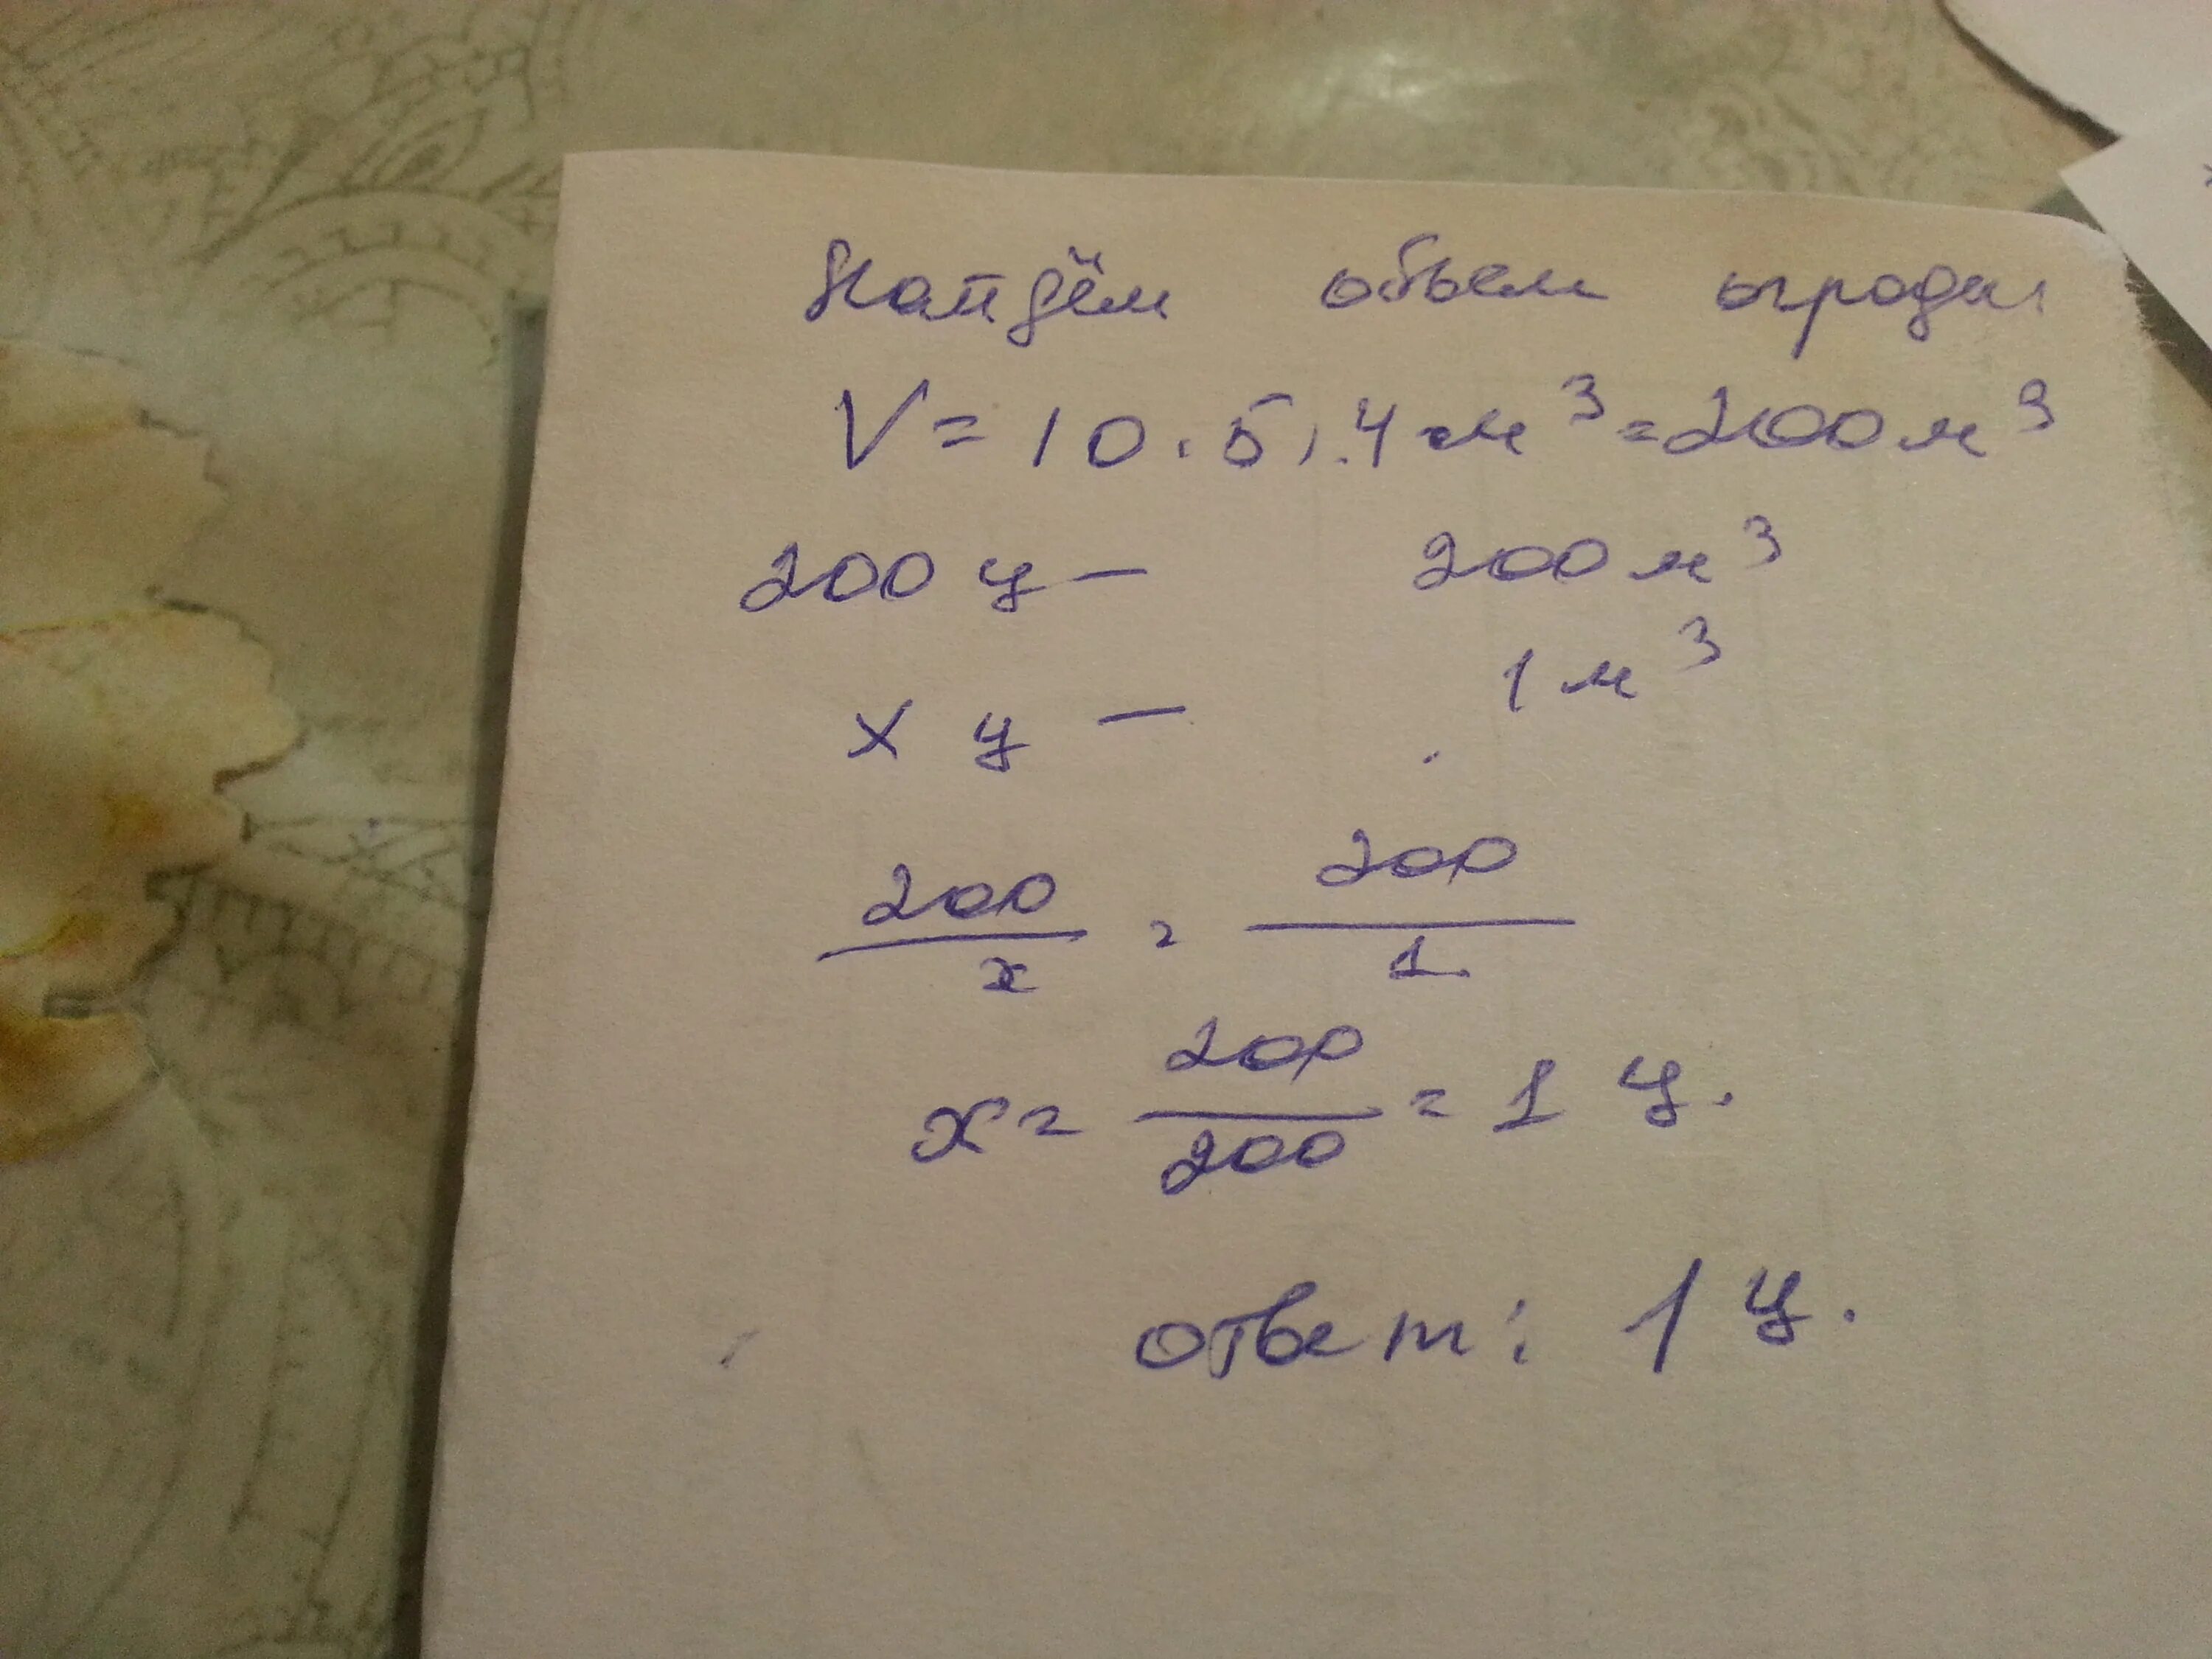 Найдём объем ограды
V = 10 · 5 · 4 м³ = 200 м³
200 ц — 200 м³
x ц — 1 м³
200/x = 200/1
x = 200/200 = 1 ц.
ответ: 1 ц.